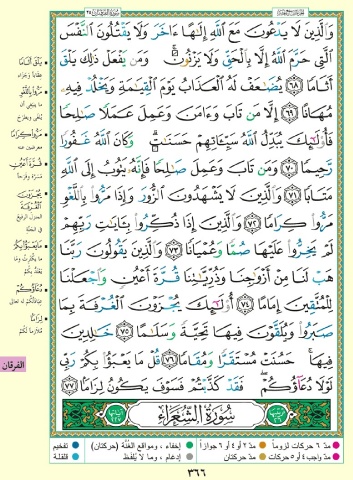 وَالَّذِينَ لَا يَدْعُونَ مَعَ اللَّهِ إِلَٰهًا ءَاخَرَ وَلَا يَقْتُلُونَ النَّفْسَ
الَّتِي حَرَّمَ اللَّهُ إِلَّا بِالْحَقِّ وَلَا يَزْنُونَ ۚ وَمَن يَفْعَلْ ذَٰلِكَ يَلْقَ
أَثَامًا ٦٨ يُضَٰعَفْ لَهُ الْعَذَابُ يَوْمَ الْقِيَٰمَةِ وَيَخْلُدْ فِيهِۦ
مُهَانًا ٦٩ إِلَّا مَن تَابَ وَءَامَنَ وَعَمِلَ عَمَلًا صَٰلِحًا
فَأُو۟لَٰٓئِكَ يُبَدِّلُ اللَّهُ سَيِّـَٔاتِهِمْ حَسَنَٰتٍ ۗ وَكَانَ اللَّهُ غَفُورًا
رَّحِيمًا ٧٠ وَمَن تَابَ وَعَمِلَ صَٰلِحًا فَإِنَّهُۥ يَتُوبُ إِلَى اللَّهِ
مَتَابًا ٧١ وَالَّذِينَ لَا يَشْهَدُونَ الزُّورَ وَإِذَا مَرُّوا۟ بِاللَّغْوِ
مَرُّوا۟ كِرَامًا ٧٢ وَالَّذِينَ إِذَا ذُكِّرُوا۟ بِـَٔايَٰتِ رَبِّهِمْ
لَمْ يَخِرُّوا۟ عَلَيْهَا صُمًّا وَعُمْيَانًا ٧٣ وَالَّذِينَ يَقُولُونَ رَبَّنَا
هَبْ لَنَا مِنْ أَزْوَٰجِنَا وَذُرِّيَّٰتِنَا قُرَّةَ أَعْيُنٍ وَاجْعَلْنَا
لِلْمُتَّقِينَ إِمَامًا ٧٤ أُو۟لَٰٓئِكَ يُجْزَوْنَ الْغُرْفَةَ بِمَا
صَبَرُوا۟ وَيُلَقَّوْنَ فِيهَا تَحِيَّةً وَسَلَٰمًا ٧٥ خَٰلِدِينَ
فِيهَا ۚ حَسُنَتْ مُسْتَقَرًّا وَمُقَامًا ٧٦ قُلْ مَا يَعْبَؤُا۟ بِكُمْ رَبِّي
لَوْلَا دُعَآؤُكُمْ ۖ فَقَدْ كَذَّبْتُمْ فَسَوْفَ يَكُونُ لِزَامًا ٧٧
سُورَةُ الشُّعَرَاءِ
يَلْقَ أَثَامًا
عقابا وجزاء
مَرُّوا بِاللَّغْوِ
مَرُّوا كِرَامًا
قُرَّةَ أَعْيُنٍ
مسرة وفرحا
يُجْزَوْنَ
الْغُرْفَةَ
المنزل الرفيع
في الجنة
مَا يَعْبَؤُا بِكُمْ
دُعَاؤُكُمْ
لِزَامًا
ملازما لكم
الفرقان
مدّ ٦ حركات لزوماً
مدّ ٢ أو ٤ أو ٦ جوازاً
إخفاء، ومواقع الغُنَّة (حركتان)
تفخيم
مدّ واجب ٤ أو ٥ حركات
مدّ حركتان
إدغام، وما لا يُلفَظ
قلقلة
٣٦٦